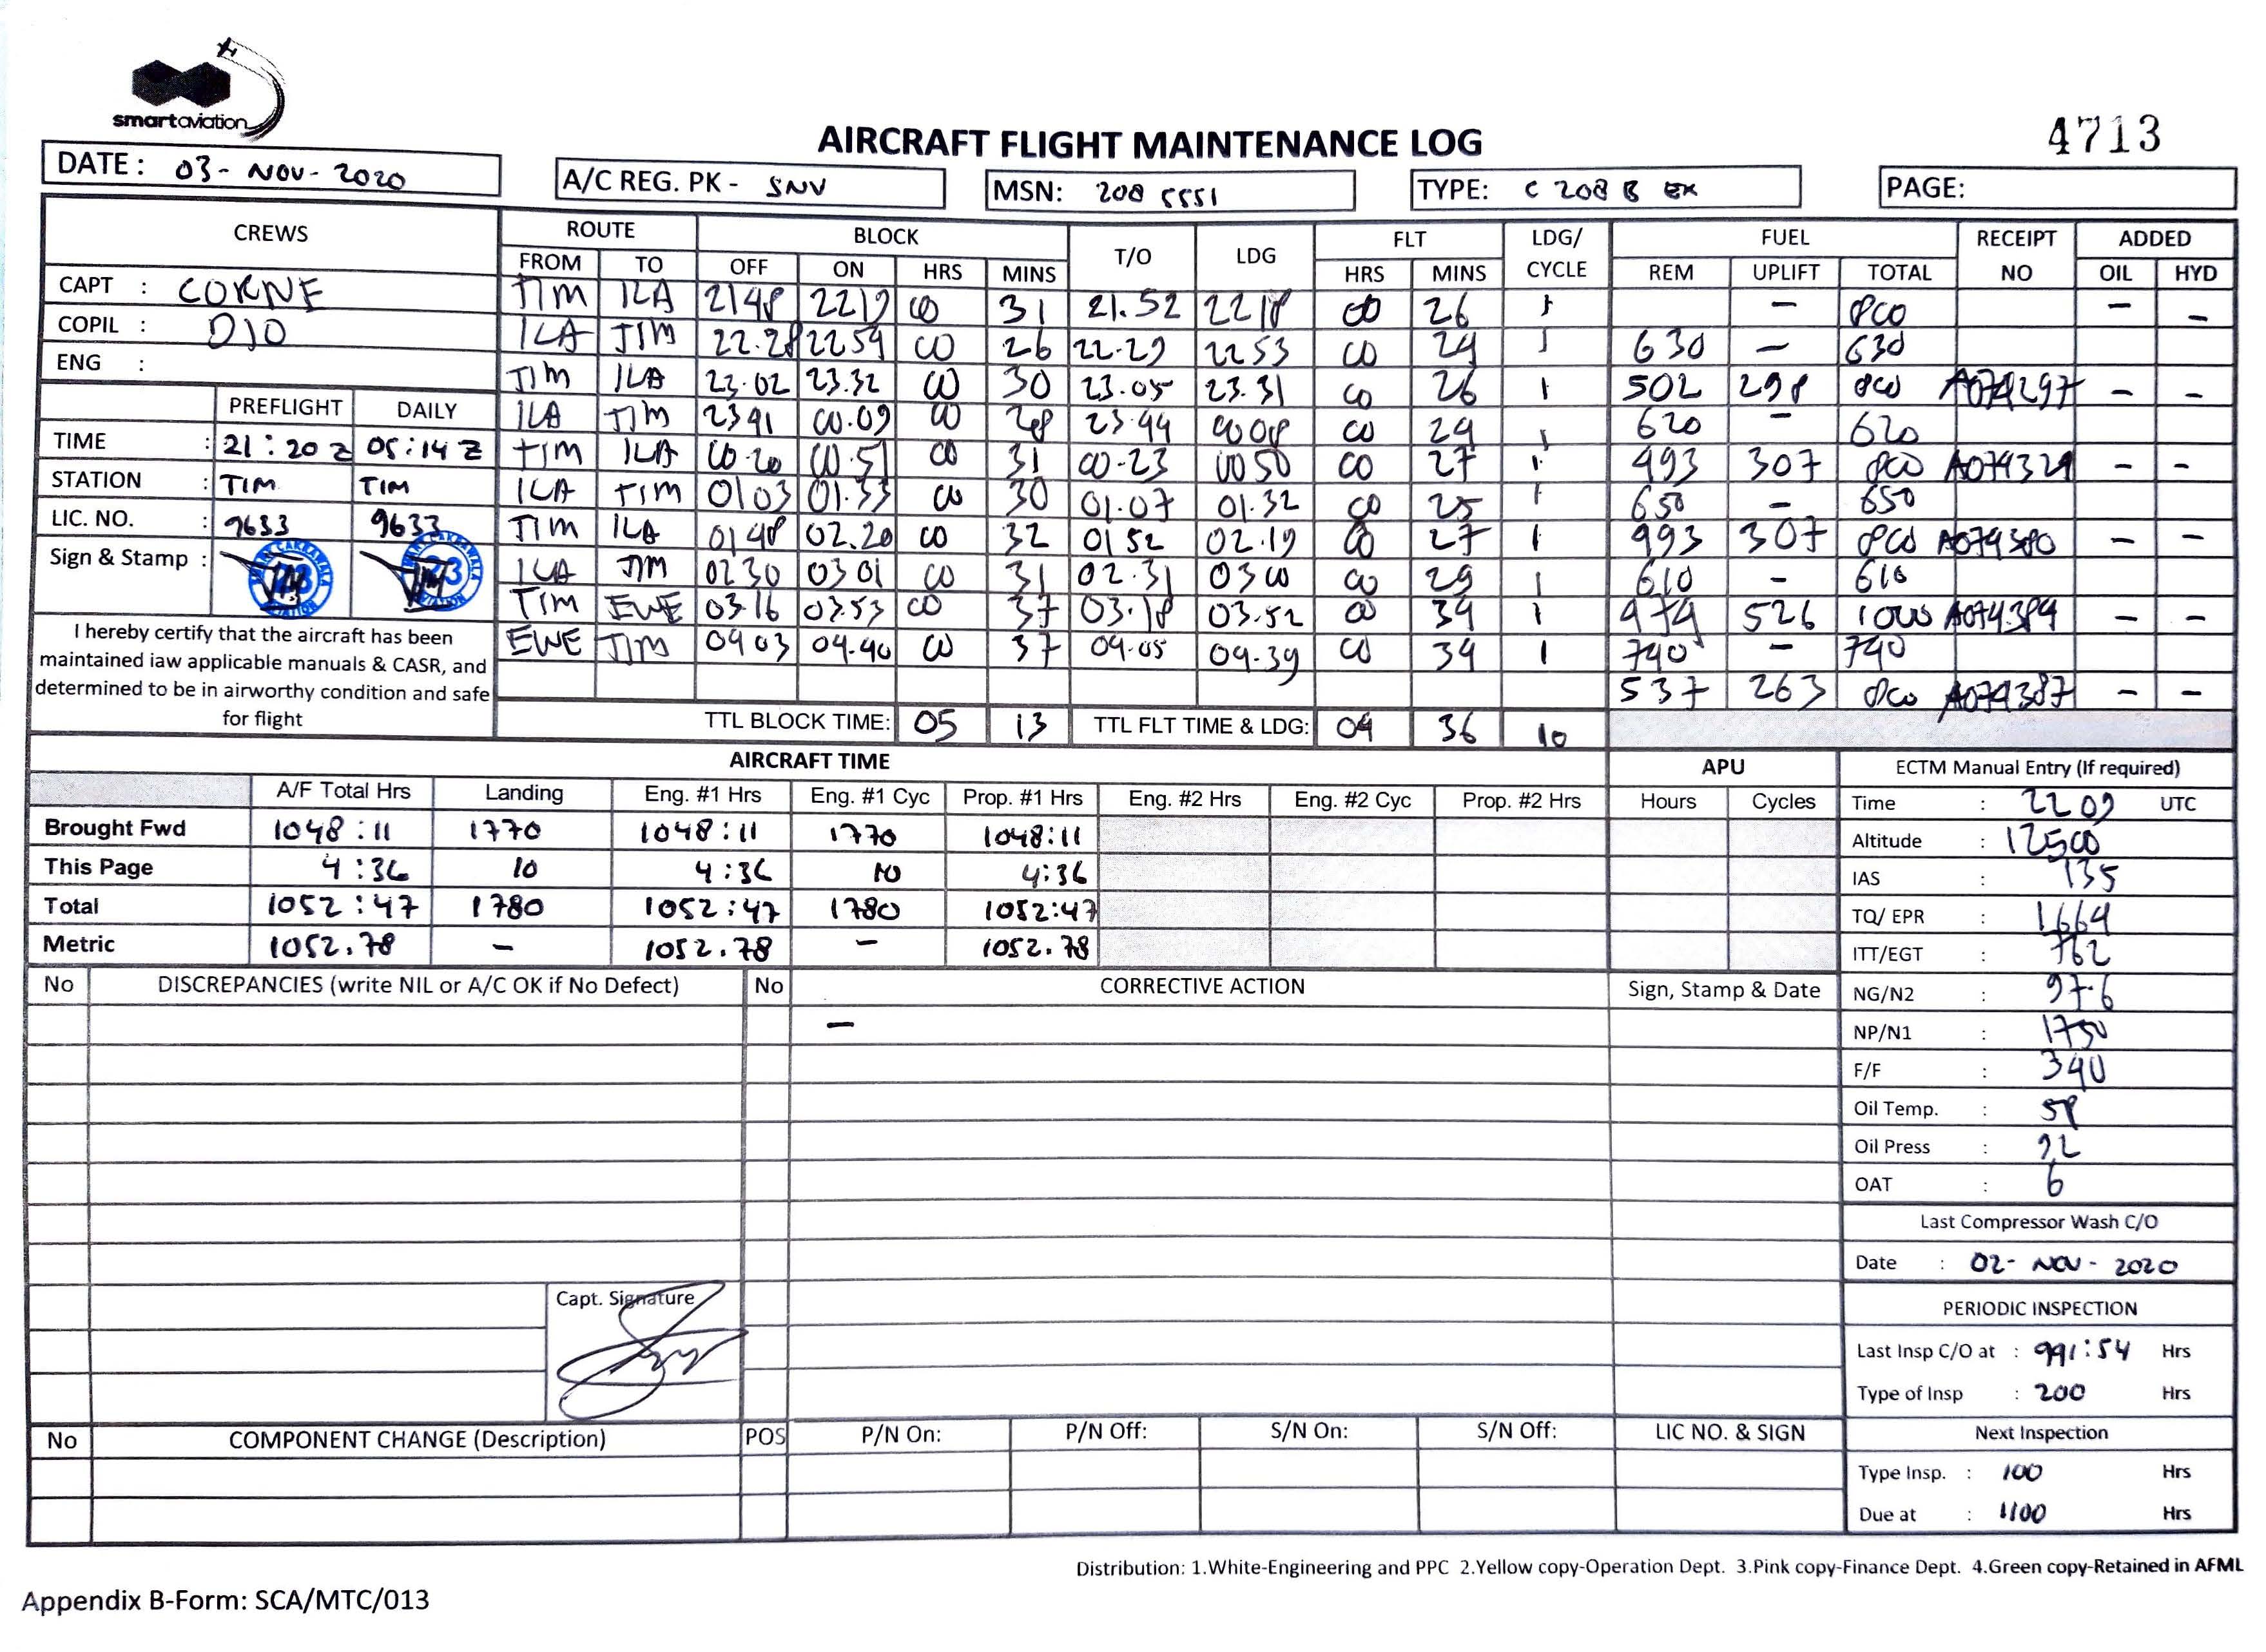 smartaviation
AIRCRAFT FLIGHT MAINTENANCE LOG
4713
DATE : 03- NOV- 2020
A/C REG. PK - SNV
MSN: 208 5551
TYPE: C 208 B EX
PAGE:
CREWS ROUTE BLOCK T/O LDG FLT LDG/ CYCLE FUEL RECEIPT NO ADDED
FROM TO OFF ON HRS MINS HRS MINS REM UPLIFT TOTAL OIL HYD
CAPT : CORNE
COPIL : DIO
ENG :
TIM ILA 2148 2219 00 31 21.52 2218 00 26 1 - 800 - -
ILA TIM 22.28 2254 00 26 22.29 2253 00 24 1 630 - 630
TIM ILA 23.02 23.32 00 30 23.05 23.31 00 26 1 502 298 800 A074297 - -
ILA TIM 2341 00.09 00 28 23.44 0008 00 24 1 620 - 620
TIM ILA 00.20 00.51 00 31 00-23 0050 00 27 1 493 307 800 A074329 - -
ILA TIM 0103 01.33 00 30 01.07 01.32 00 25 1 650 - 650
TIM ILA 0148 02.20 00 32 0152 02.19 00 27 1 493 307 800 A074380 - -
ILA TIM 0230 0301 00 31 02.31 0300 00 29 1 610 - 610
TIM EWE 03.16 03.53 00 37 03.18 03.52 00 34 1 474 526 1000 A074384 - -
EWE TIM 0403 04.40 00 37 04.05 04.39 00 34 1 740 - 740
537 263 800 A074387 - -
TTL BLOCK TIME: 05 13 TTL FLT TIME & LDG: 04 36 10
PREFLIGHT DAILY
TIME : 21:20 Z 05:14 Z
STATION : TIM TIM
LIC. NO. : 9633 9633
Sign & Stamp :
I hereby certify that the aircraft has been
maintained iaw applicable manuals & CASR, and
determined to be in airworthy condition and safe
for flight
AIRCRAFT TIME APU
A/F Total Hrs Landing Eng. #1 Hrs Eng. #1 Cyc Prop. #1 Hrs Eng. #2 Hrs Eng. #2 Cyc Prop. #2 Hrs Hours Cycles
Brought Fwd 1048:11 1770 1048:11 1770 1048:11
This Page 4:36 10 4:36 10 4:36
Total 1052:47 1780 1052:47 1780 1052:47
Metric 1052.78 - 1052.78 - 1052.78
ECTM Manual Entry (If required)
Time : 2209 UTC
Altitude : 12500
IAS : 135
TQ/ EPR : 1664
ITT/EGT : 762
NG/N2 : 97.6
NP/N1 : 1750
F/F : 340
Oil Temp. : 58
Oil Press : 92
OAT : 6
Last Compressor Wash C/O
Date : 02- NOV - 2020
PERIODIC INSPECTION
Last Insp C/O at : 991:54 Hrs
Type of Insp : 200 Hrs
Next Inspection
Type Insp. : 100 Hrs
Due at : 1100 Hrs
No DISCREPANCIES (write NIL or A/C OK if No Defect) No CORRECTIVE ACTION Sign, Stamp & Date
-
Capt. Signature
No COMPONENT CHANGE (Description) POS P/N On: P/N Off: S/N On: S/N Off: LIC NO. & SIGN
Distribution: 1.White-Engineering and PPC 2.Yellow copy-Operation Dept. 3.Pink copy-Finance Dept. 4.Green copy-Retained in AFML
Appendix B-Form: SCA/MTC/013